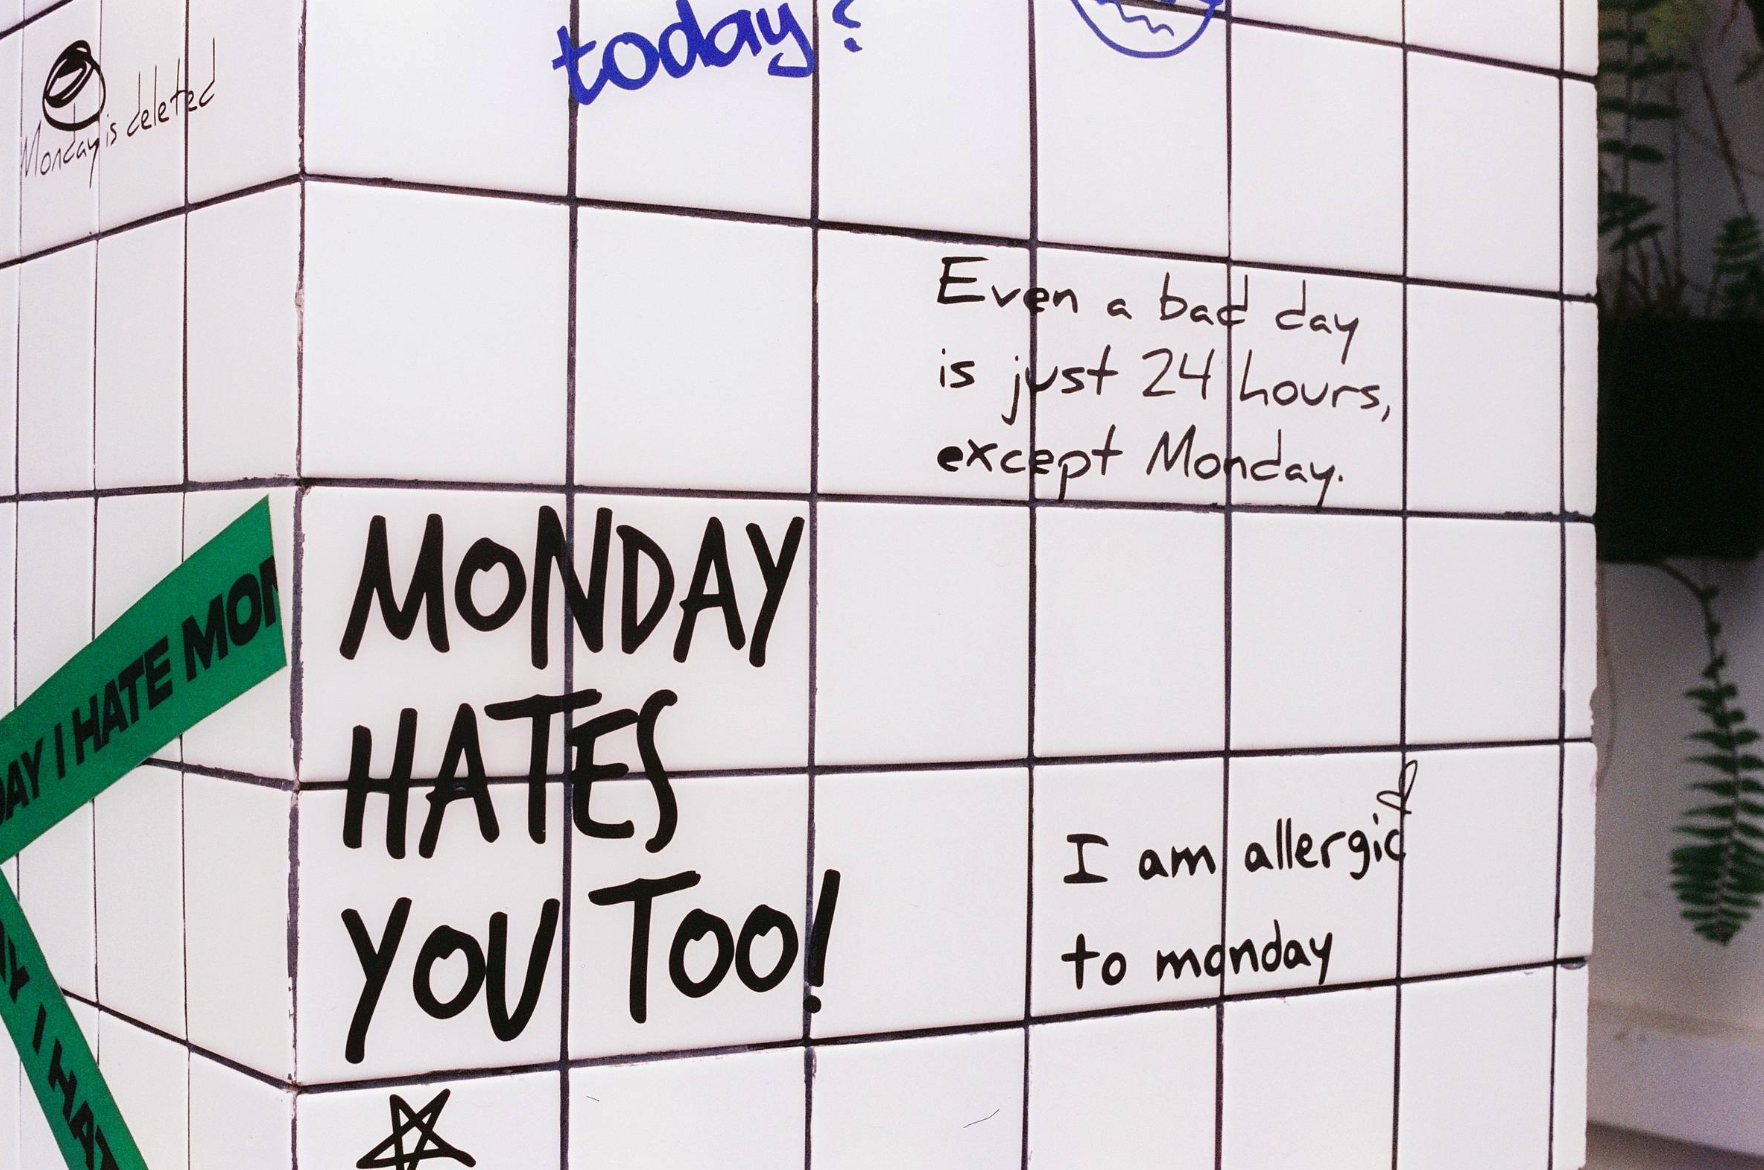 today?
Monday is deleted
Even a bad day
is just 24 hours,
except Monday.
MONDAY
HATES
YOU TOO!
I am allergic
to monday
DAY I HATE MON
AY I HA